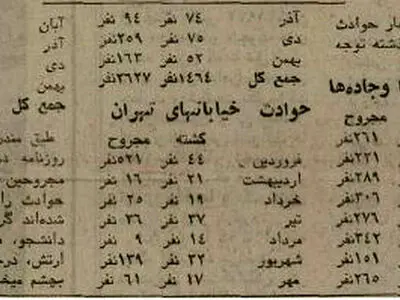 ار حوادث
ذشته توجه
وجاده‌ها
مجروح
۲۶۱نفر
۲۲۱نفر
۲۸۹نفر
۳۰۶نفر
۲۷۶نفر
۳۴۲نفر
۱۵۱نفر
۲۶۵نفر
آذر ۷۴ نفر ۹۴ نفر
دی ۷۵ نفر ۲۵۹نفر
بهمن ۵۲ نفر ۱۶۳نفر
جمع کل ۱۴۶۴نفر ۳۶۲۷نفر
حوادث خیابانهای تهران
کشته مجروح
فروردین ۴۴ نفر ۵۲۱نفر
اردیبهشت ۲۱ نفر ۱۶ نفر
خرداد ۱۹ نفر ۲۵ نفر
تیر ۳۷ نفر ۳۶ نفر
مرداد ۱۴ نفر ۹ نفر
شهریور ۳۲ نفر ۱۳۹نفر
مهر ۱۷ نفر ۶۱ نفر
آبان
آذر
دی
بهمن
جمع کل
طبق مندر
روزنامه در
مجروحین
حوادث را
شده‌اند گر
دانشجو،
ارتش، در
بچشم میخو